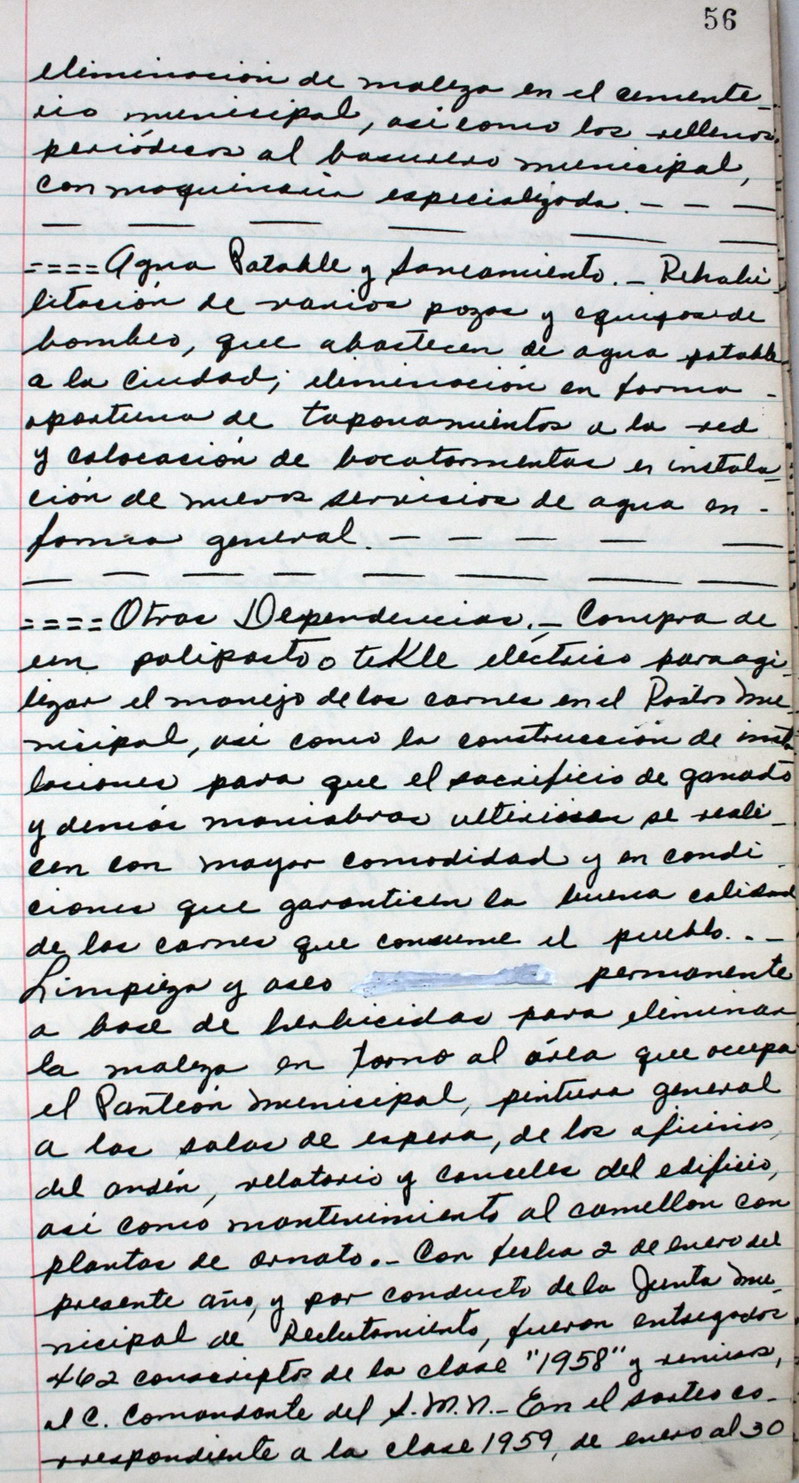 56
eliminación de maleza en el cemente_
rio municipal, así como los rellenos
periódicos al basurero municipal,
con maquinaria especializada. _ _ _
_ _ _ _ _ _
==== Agua Potable y Saneamiento._ Rehabi_
litación de varios pozos y equipos de
bombeo, que abastecen de agua potable
a la Ciudad; eliminación en forma -
oportuna de taponamientos a la red
y colocación de bocatormentas e instala_
ción de nuevos servicios de agua en -
forma general. _ _ _ _ _
_ _ _ _ _ _ _
==== Otras Dependencias._ Compra de
un polipasto o teKle eléctrico para agi_
lizar el manejo de las carnes en el Rastro Mu_
nicipal, así como la construcción de insta
laciones para que el sacrificio de ganado
y demás maniobras se reali_
cen con mayor comodidad y en condi_
ciones que garanticen la buena calidad
de las carnes que consume el pueblo._ _
Limpieza y aseo permanente
a base de herbicidas para eliminar
la maleza en torno al área que ocupa
el Panteón Municipal, pintura general
a las salas de espera, de las oficinas,
del andén, y canceles del edificio,
así como mantenimiento al camellon con
plantas de ornato._ Con fecha 2 de enero del
presente año, y por conducto de la Junta Mu_
nicipal de Reclutamiento, fueron entregados
462 conscriptos de la clase "1958" y remisos,
al C. Comandante del S.M.N._ En el sorteo co_
rrespondiente a la clase 1959, de enero al 30